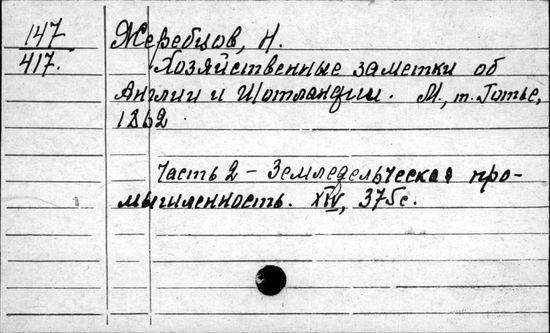 147
417.
Жеребцов, Н.
Хозяйственные заметки об
Англии и Шотландии. М., т. Готье,
1862
Часть 2 – Земледельческая про-
мышленность. XIV, 375с.